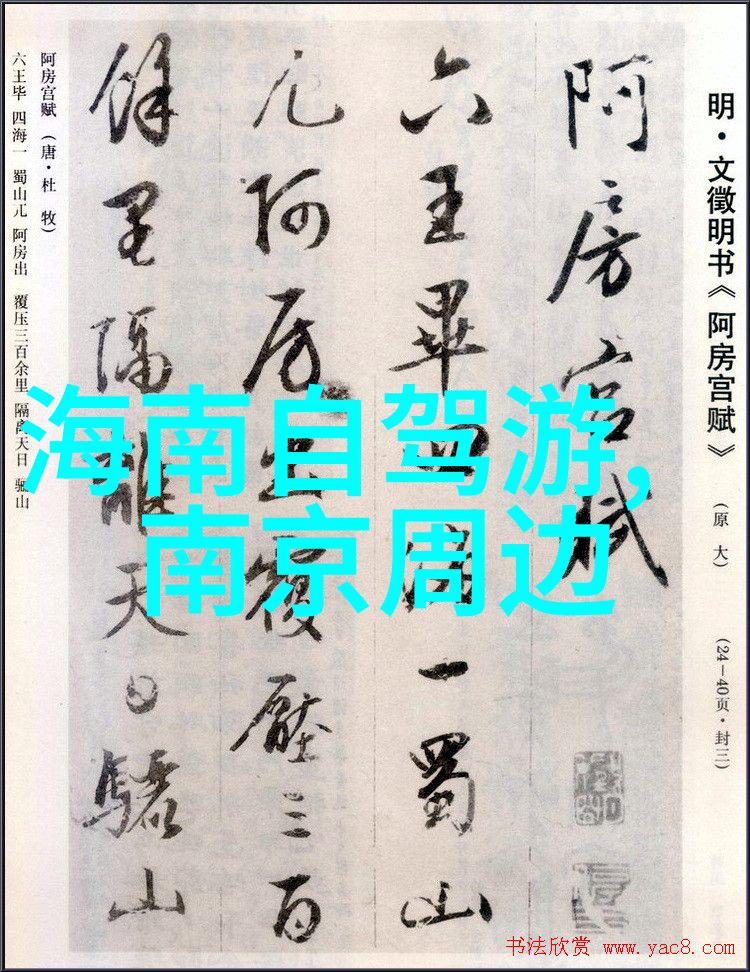 明·文徵明书《阿房宫赋》(原大)(24—40页·封三)
阿房宫赋
六王畢四海一蜀山
兀阿房出覆壓三百
餘里隔離天日驪山
阿房宫赋(唐·杜牧)
六王毕 四海一 蜀山兀 阿房出 覆压三百余里 隔离天日 骊山
海南自驾游,
南京周边
书法欣赏 www.yac8.com